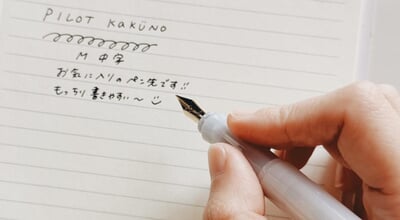 PILOT KaKüNO
M 中字
お気に入りのペン先です!!
もっちり書きやすい〜